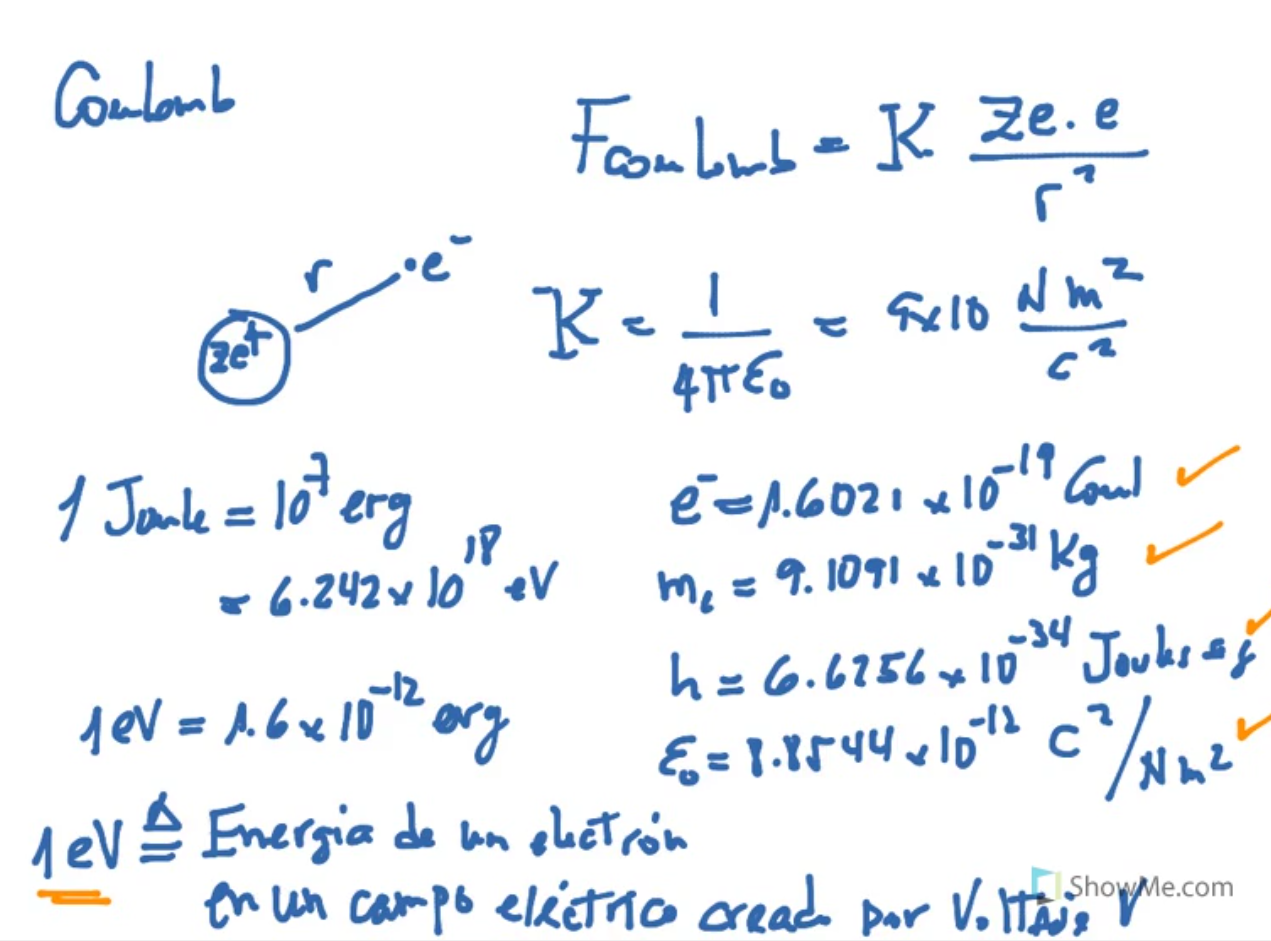 Coulomb
F coulomb = K Ze·e / r²
r
·e⁻
ze⁺
K = 1 / 4πε₀ = 9x10 Nm² / c²
1 Joule = 10⁷ erg
= 6.242 x 10¹⁸ eV
1eV = 1.6 x 10⁻¹² erg
e⁻ = 1.6021 x 10⁻¹⁹ Coul
mₑ = 9.1091 x 10⁻³¹ Kg
h = 6.6256 x 10⁻³⁴ Joules
ε₀ = 8.8544 x 10⁻¹² C² / Nm²
1eV ≜ Energia de un electrón
en un campo eléctrico creado por Voltaje V
ShowMe.com